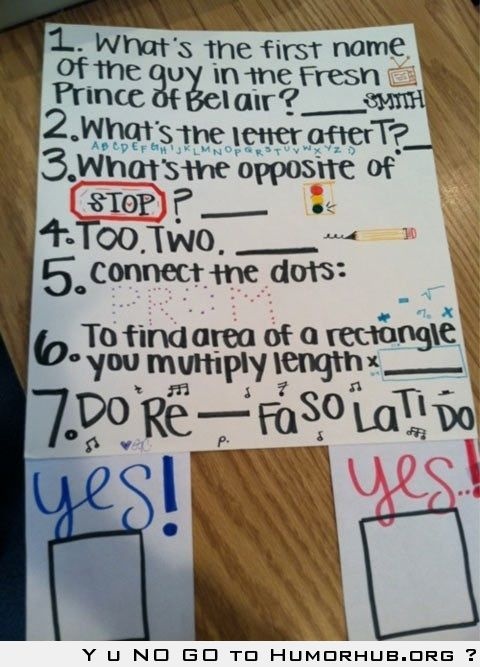 1. What's the first name
of the guy in the Fresh
Prince of Bel air? ____ SMITH
2. What's the letter after T? __
ABCDEFGHIJKLMNOPQRSTUVWXYZ :)
3. What's the opposite of
STOP ? ____
4. TOO, TWO, ____
5. Connect the dots:
PROM
6. To find area of a rectangle
you multiply length x ____
7. DO RE — FA SO LA TI DO
yes!
yes..!
Y U NO GO TO HUMORHUB.ORG ?